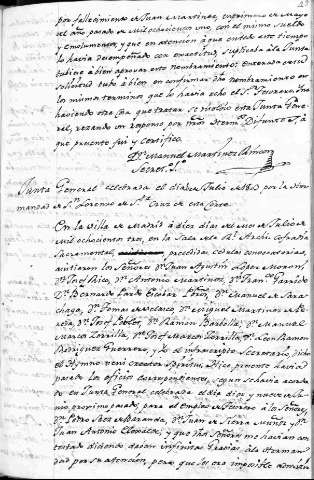 por fallecimiento de Juan Martinez, en primero de Mayo
del año pasado de mil ochocientos uno, con el mismo sueldo
y emolumentos, y que en atención a que en todo este tiempo
lo havia desempeñado con exactitud, suplicaba a la Junta
tubiese a bien aprovar este nombramiento: enterada de su
solicitud tubo a bien en confirmar dho nombramiento en
los mismos terminos que lo havia echo el Sr Tesorero. I no
haviendo otra cosa que tratar se disolvio esta Junta Gene
ral, rezando un responso por nros Herms Difuntos de
que presente fui y certifico.
Dn Manuel Martinez Rincon
Secreto
Junta General celebrada el dia de Julio de 803 por la Her
mandad de Sn Lorenzo de Sta Cruz de esta Corte.
En la Villa de Madrid à diez dias del mes de Julio de
mil ochocientos tres, en la Sala de la Rl Archi-cofradia
Sacramental, precedidas cedulas convocatorias,
asistieron los Señores Dn Juan Agustin Lopez
Dn Josef Rico, Dn Antonio Martinez, Dn Franco Garrido
Dn Bernardo Dn Manuel de Sara
chaga, Dn Tomas de Velasco, Dn Enrique Martinez de
Dn Josef Dn Ramon Dn Manuel
Marco Zorrilla, Dn Josef Marcos Zorrilla, Dn Ramon
Rodriguez Guerrero, y Yo el infrascripto Secretario, dicho
el Hymno veni Creator Spiritus, Dixe, presente havia
pasado los oficios correspondientes, segun se havia acorda
do en Junta General celebrada el dia diez y nueve de Ju
nio proximo pasado, para el empleo de Tesorero a los Señores
Dn Pedro Saez de Baranda, Dn Juan de Sierra y Dn
Juan Antonio y que dhos Señores me havian con
testado diciendo davan infinitas Gracias a la Herman
dad por su atencion, pero que les era imposible admitir